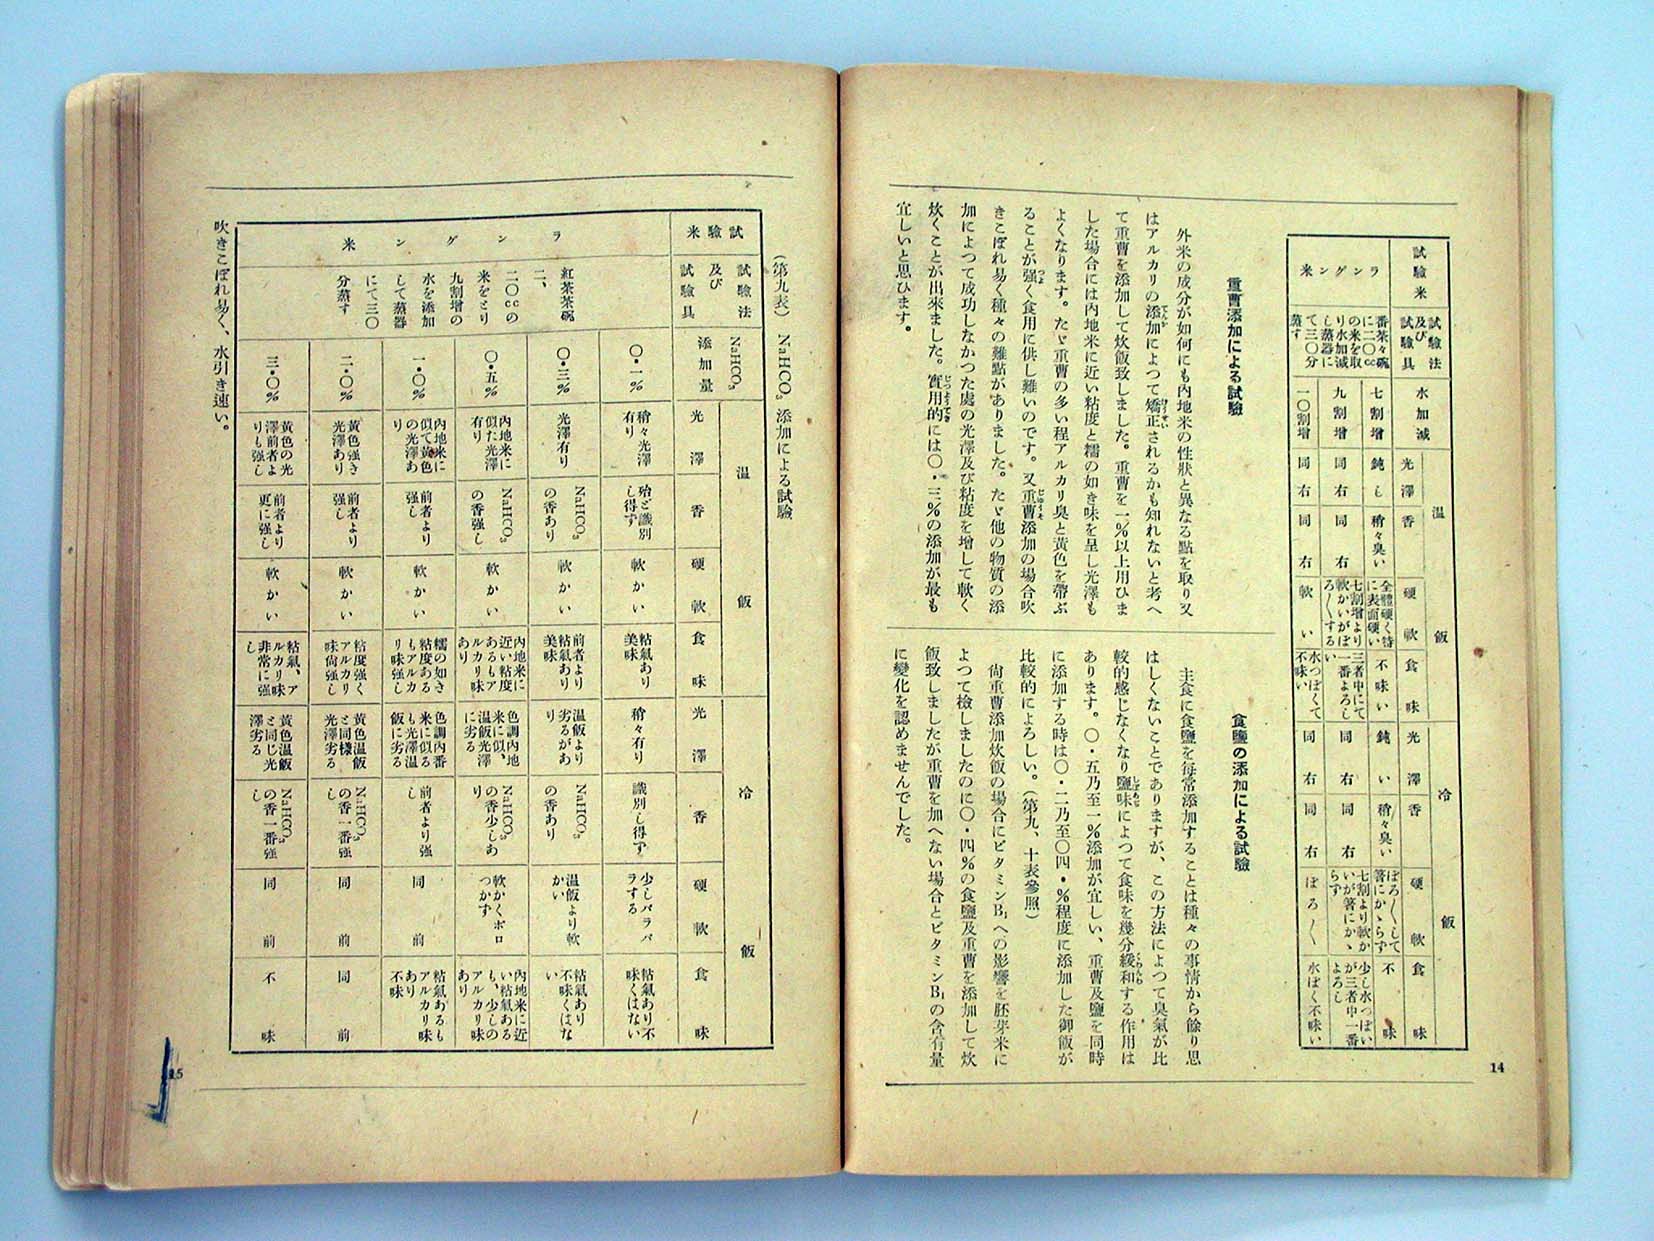 14
試驗米
試驗法及び試驗具
水加減
温飯
光澤
香
硬軟
食味
冷飯
光澤
香
硬軟
食味
ラングン米
番茶々碗に二〇ccの米を取り水加減し蒸器にて三〇分蒸す
七割增
鈍し
稍々臭い
全體硬く特に表面硬い
不味い
鈍い
稍々臭い
ぼろ〱して箸にかゝらず
不味
九割增
同右
同右
七割增より軟かいがぼろ〱する
三者中にて一番よろしい
同右
同右
七割より軟かいが箸にかゝらず
少し水つぽいが三者中一番よろし
一〇割增
同右
同右
軟い
水つぽくて不味い
同右
同右
ぼろ〱
水ぽく不味い
重曹添加による試驗
外米の成分が如何にも內地米の性狀と異なる點を取り又
はアルカリの添加によつて矯正されるかも知れないと考へ
て重曹を添加して炊飯致しました。重曹を一%以上用ひま
した場合には內地米に近い粘度と糯の如き味を呈し光澤も
よくなります。たゞ重曹の多い程アルカリ臭と黃色を帶ぶ
ることが强く食用に供し難いのです。又重曹添加の場合吹
きこぼれ易く種々の難點がありました。たゞ他の物質の添
加によつて成功しなかつた處の光澤及び粘度を增して軟く
炊くことが出來ました。實用的には〇・三%の添加が最も
宜しいと思ひます。
食鹽の添加による試驗
主食に食鹽を每常添加することは種々の事情から餘り思
はしくないことでありますが、この方法によつて臭氣が比
較的感じなくなり鹽味によつて食味を幾分緩和する作用は
あります。〇・五乃至一%添加が宜しい、重曹及鹽を同時
に添加する時は〇・二乃至〇四・%程度に添加した御飯が
比較的によろしい。(第九、十表參照)
尙重曹添加炊飯の場合にビタミンB₁への影響を胚芽米に
よつて檢しましたのに〇・四%の食鹽及重曹を添加して炊
飯致しましたが重曹を加へない場合とビタミンB₁の含有量
に變化を認めませんでした。
(第九表) NaHCO₃添加による試驗
試驗米
試驗法及び試驗具
NaHCO₃添加量
温飯
光澤
香
硬軟
食味
冷飯
光澤
香
硬軟
食味
ラングン米
紅茶茶碗二、二〇ccの米をとり九割增の水を添加して蒸器にて三〇分蒸す
〇・一%
稍々光澤有り
殆ど識別し得ず
軟かい
粘氣あり美味
稍々有り
識別し得ず
少しバラバラする
粘氣あり不味くはない
〇・三%
光澤有り
NaHCO₃の香あり
軟かい
前者より粘氣あり美味
温飯より劣るがあり
NaHCO₃の香あり
温飯より軟かい
粘氣あり不味くはない
〇・五%
內地米に似た光澤有り
NaHCO₃の香强し
軟かい
內地米に近い粘度あるもアルカリ味あり
色調內地米に似、温飯光澤に劣る
NaHCO₃の香少しあり
軟かくボロつかず
內地米に近い粘氣あるも、少しのアルカリ味あり
一・〇%
內地米に似て黃色の光澤あり
前者より强し
軟かい
糯の如き粘度あるもアルカリ味强し
色調內番米に似るも光澤温飯に劣る
前者より强し
同前
粘氣あるもアルカリ味あり不味
二・〇%
黃色强き光澤あり
前者より强し
軟かい
粘度强くアルカリ味尙强し
黃色温飯と同樣光澤劣る
NaHCO₃の香一番强し
同前
同前
三・〇%
黃色の光澤前者よりも强し
前者より更に强し
軟かい
粘氣、アルカリ味非常に强し
黃色温飯と同じ光澤劣る
NaHCO₃の香一番强し
同前
不味
吹きこぼれ易く、水引き速い。
15